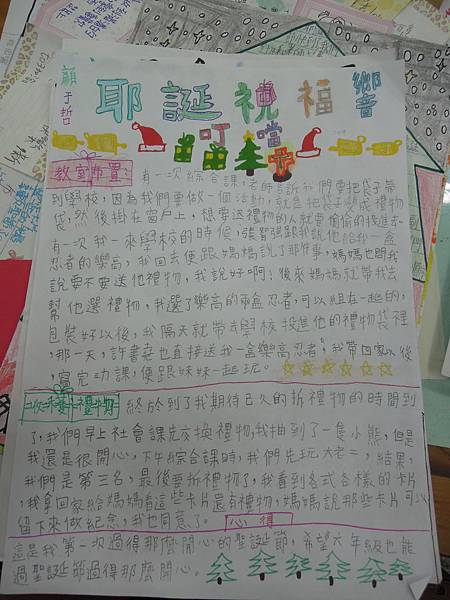 顏于哲
耶誕祝福響
叮噹
教室布置:
有一次綜合課,老師告訴我們要把袋子帶
到學校,因為我們要做一個活動,就是把袋子變成禮物
袋,然後掛在窗戶上,想要送禮物的人就要偷偷的投進去。
有一次我一來學校的時候,張 強跟我說他 給我一盒
忍者的樂高,我回去便跟媽媽說了那件事,媽媽也問我
說要不要送他禮物,我說好啊!後來媽媽就帶我去
幫他選禮物,我選了樂高的兩盒忍者,可以組在一起的,
包裝好以後,我隔天就帶去學校投進他的禮物袋裡
,那一天,許書 也直接送我一盒樂高忍者,我帶回家以後
,寫完功課,便跟妹妹一起玩。
收到禮物
終於到了我期待已久的拆禮物的時間到
了,我們早上社會課先交換禮物,我抽到了一隻小熊,但是
我還是很開心,下午綜合課時,我們先玩大老二,結果,
我們是第三名,最後要拆禮物了,我看到各式各樣的卡片
,我拿回家給媽媽看這些卡片還有禮物,媽媽說那些卡片可以
留下來做紀念,我也同意了。
心得
這是我第一次過得那麼開心的聖誕節,希望六年級也能
過聖誕節過得那麼開心。